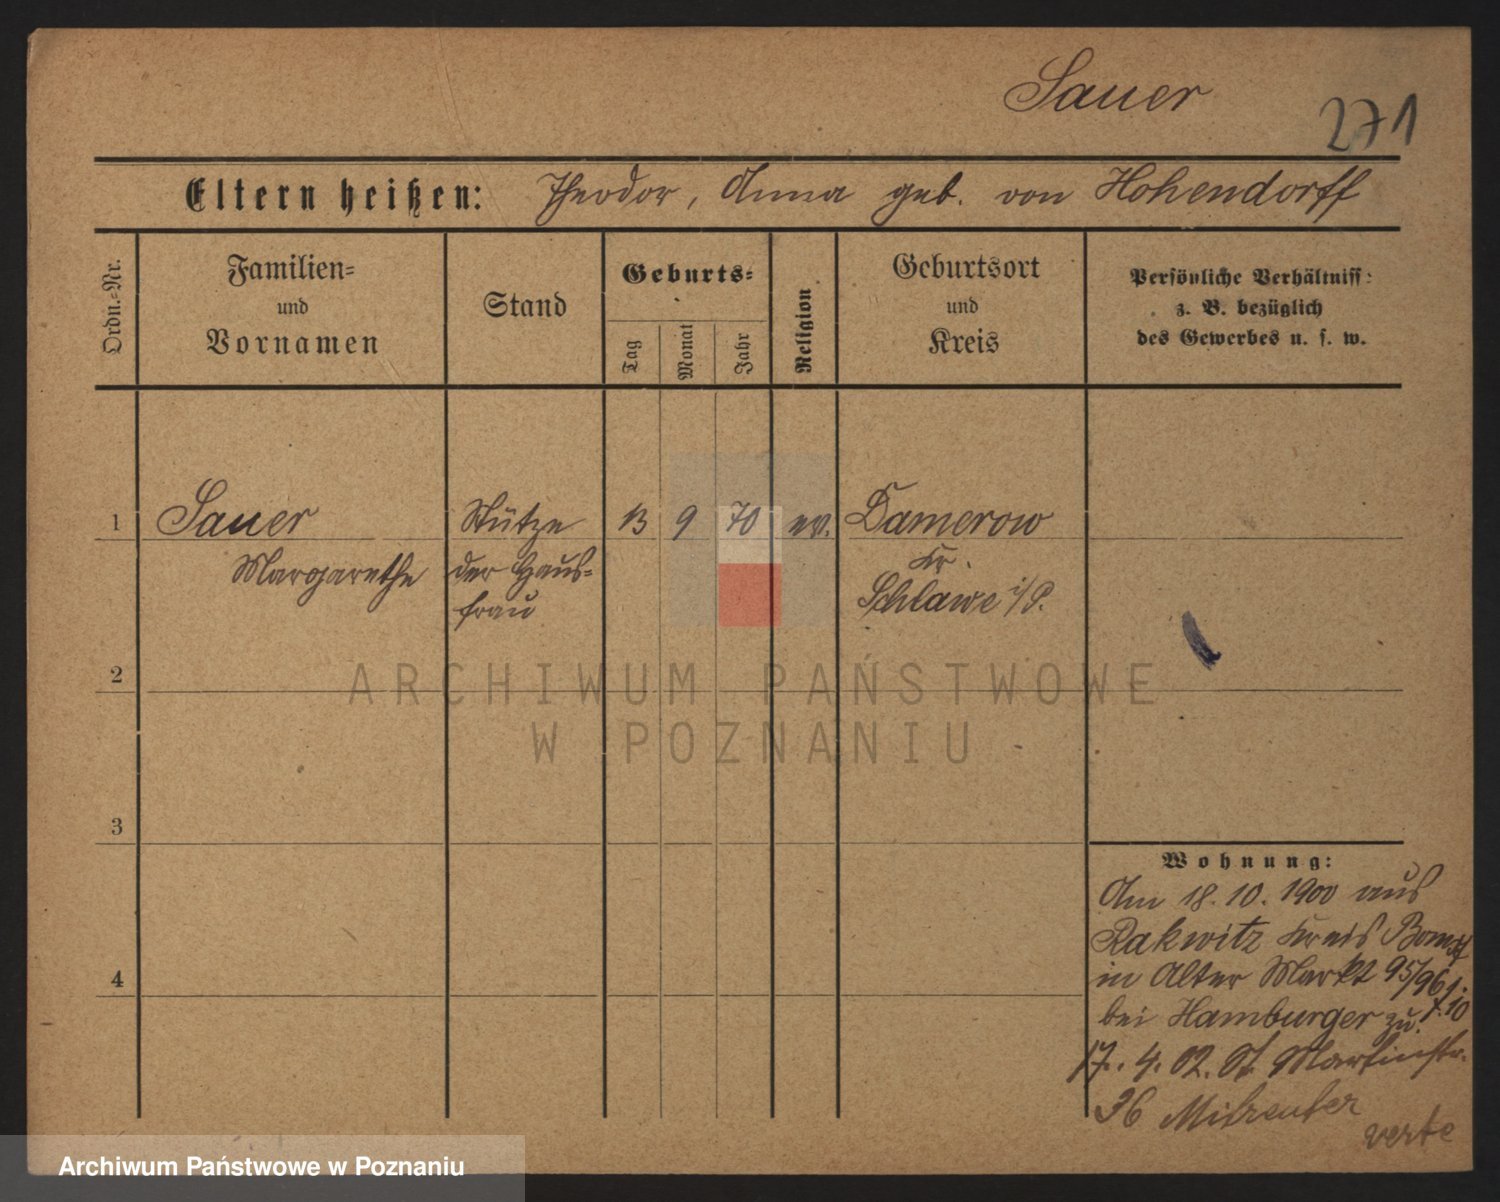 Sauer
271
Eltern heißen: Theodor, Anna geb. von Hohendorff
Ordn.=Nr.
Familien=
und
Vornamen
Stand
Geburts=
Tag
Monat
Jahr
Religion
Geburtsort
und
Kreis
Persönliche Verhältniss:
z. B. bezüglich
des Gewerbes u. s. w.
1 Sauer Stütze 13 9 70 ev. Damerow
Margarethe der Haus= Kr.
frau Schlawe i/P.
2
ARCHIWUM PAŃSTWOWE
W POZNANIU
3
Wohnung:
Am 18.10.1900 aus
Rakwitz Kreis Bomst
in Alter Markt 95/96
bei Hamburger zu.
1.10
17.4.02. St. Martinstr.
36
4
verte
Archiwum Państwowe w Poznaniu